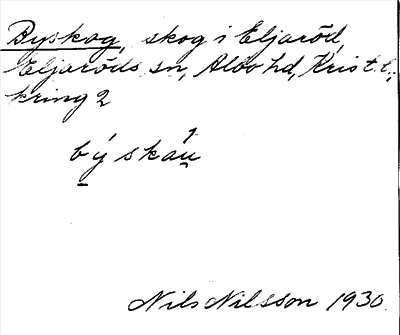 Byskog, skog i Eljaröd,
Eljaröds sn, Albo hd, Krist. l.,
kring 2
býskáu
Nils Nilsson 1930.